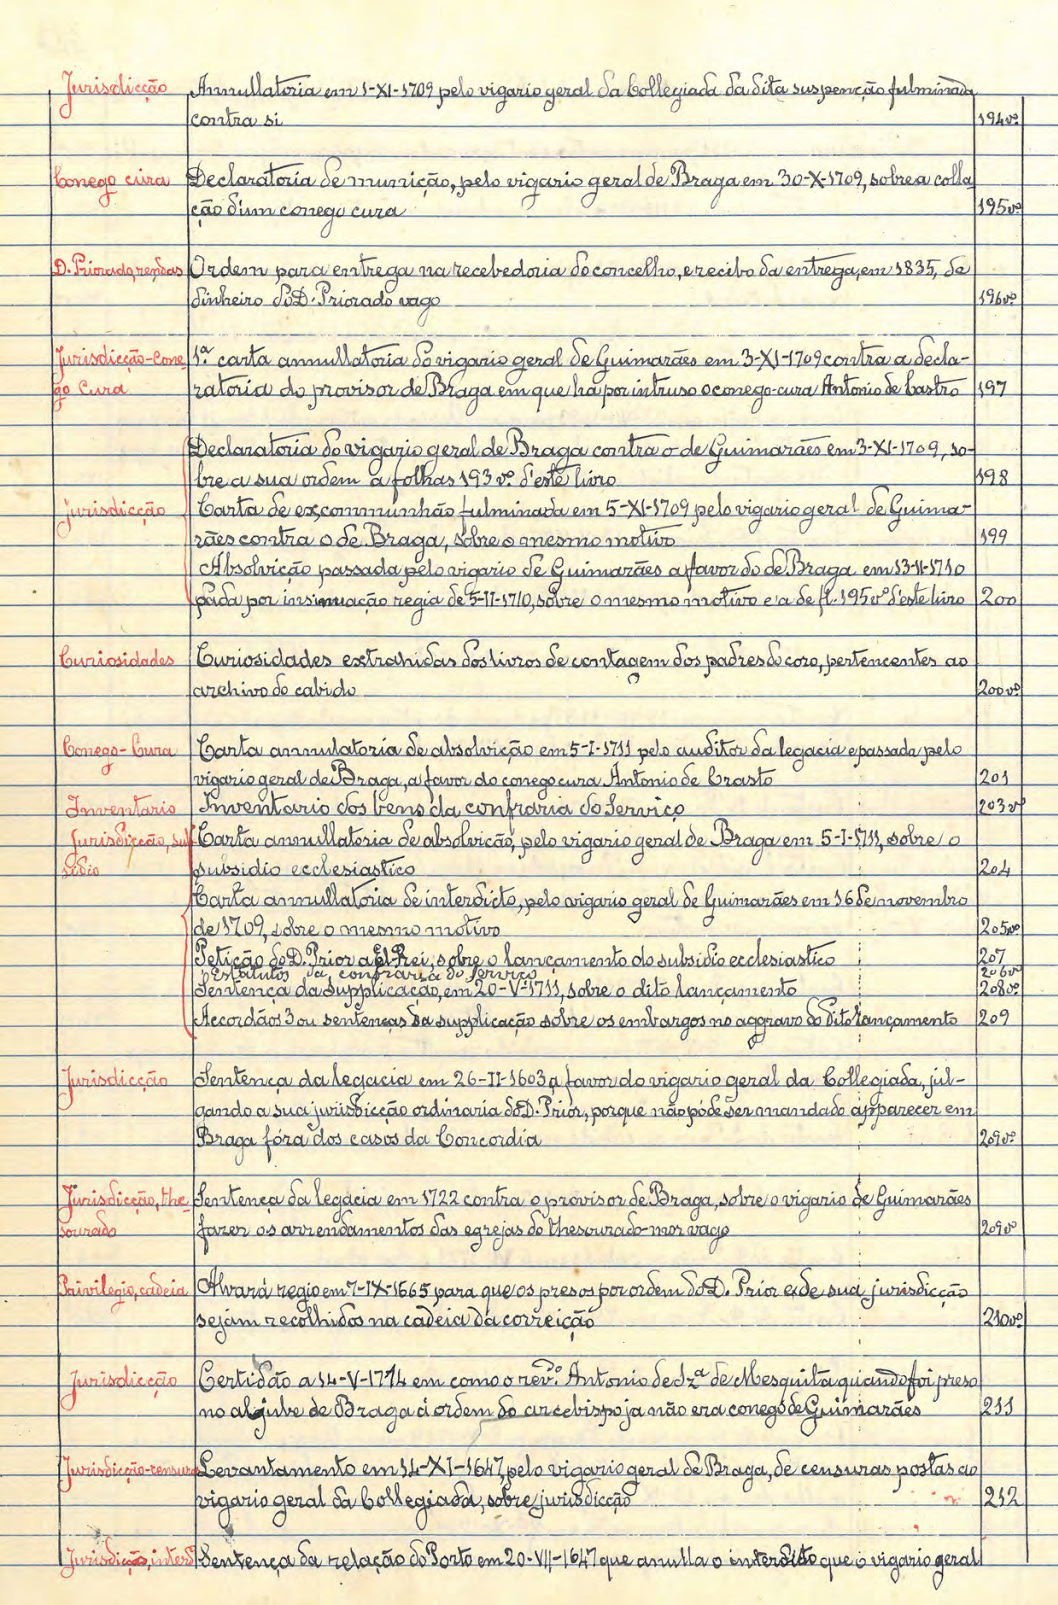 Jurisdicção Annullatoria em 1-XI-1709 pelo vigario geral da Collegiada da dita suspenção fulminada
contra si 194vº
Conego cura Declaratoria de munição, pelo vigario geral de Braga em 30-X-1709, sobre a colla
ção d'um conego cura 195vº
D. Priorado, rendas Ordem para entrega na recebedoria do concelho, e recibo da entrega, em 1835, de
dinheiro do D. Priorado vago 196vº
Jurisdicção-Cone 1ª carta annullatoria do vigario geral de Guimarães em 3-XI-1709 contra a decla-
go Cura ratoria do provisor de Braga em que ha por intruso o conego-cura Antonio de Castro 197
Declaratoria do vigario geral de Braga contra o de Guimarães em 3-XI-1709, so-
bre a sua ordem a folhas 193vº d'este livro 198
Jurisdicção Carta de excommunhão fulminada em 5-XI-1709 pelo vigario geral de Guima-
rães contra o de Braga, sobre o mesmo motivo 199
Absolvição passada pelo vigario de Guimarães a favor do de Braga em 13-II-1710
pada por insinuação regia de 5-II-1710, sobre o mesmo motivo e a de fl. 195vº d'este livro 200
Curiosidades Curiosidades extrahidas dos livros de contagem dos padres do coro, pertencentes ao
archivo do cabido 200vº
Conego-Cura Carta annulatoria de absolvição em 5-I-1711 pelo auditor da legacia e passada pelo
vigario geral de Braga, a favor do conego cura Antonio de Crasto 201
Inventario Inventario dos bens da confraria do Serviço 203vº
Jurisdicção, sub Carta annullatoria de absolvicão, pelo vigario geral de Braga em 5-I-1711, sobre o
sidio subsidio ecclesiastico 204
Carta annullatoria de interdicto, pelo vigario geral de Guimarães em 16 de novembro
de 1709, sobre o mesmo motivo 205vº
Petição do D. Prior a El-Rei, sobre o lançamento do subsidio ecclesiastico 207
Estatutos da confraria do Serviço 206vº
Sentença da supplicação, em 20-V-1711, sobre o dito lançamento 208vº
Accordãos 3 ou sentenças da supplicação sobre os embargos no aggravo do dito lançamento 209
Jurisdicção Sentença da legacia em 26-II-1603 a favor do vigario geral da Collegiada, jul-
gando a sua jurisdicção ordinaria do D. Prior, porque não póde ser mandado apparecer em
Braga fóra dos casos da Concordia 209vº
Jurisdicção, the Sentença da legacia em 1722 contra o provisor de Braga, sobre o vigario de Guimarães
sourado fazer os arrendamentos das egrejas do thesourado-mor vago 209vº
Privilegio, cadeia Alvará regio em 7-IX-1665 para que os presos por ordem do D. Prior e de sua jurisdicção
sejam recolhidos na cadeia da correição 210vº
Jurisdicção Certidão a 14-V-1774 em como o revdº. Antonio de Sza de Mesquita quando foi preso
no aljube de Braga á ordem do arcebispo ja não era conego de Guimarães 211
Jurisdicção-censura Levantamento em 14-XI-1647, pelo vigario geral de Braga, de censuras postas ao
vigario geral da Collegiada, sobre jurisdicção 212
Jurisdicção, interd Sentença da relação do Porto em 20-VII-1647 que anulla o interdito que o vigario geral